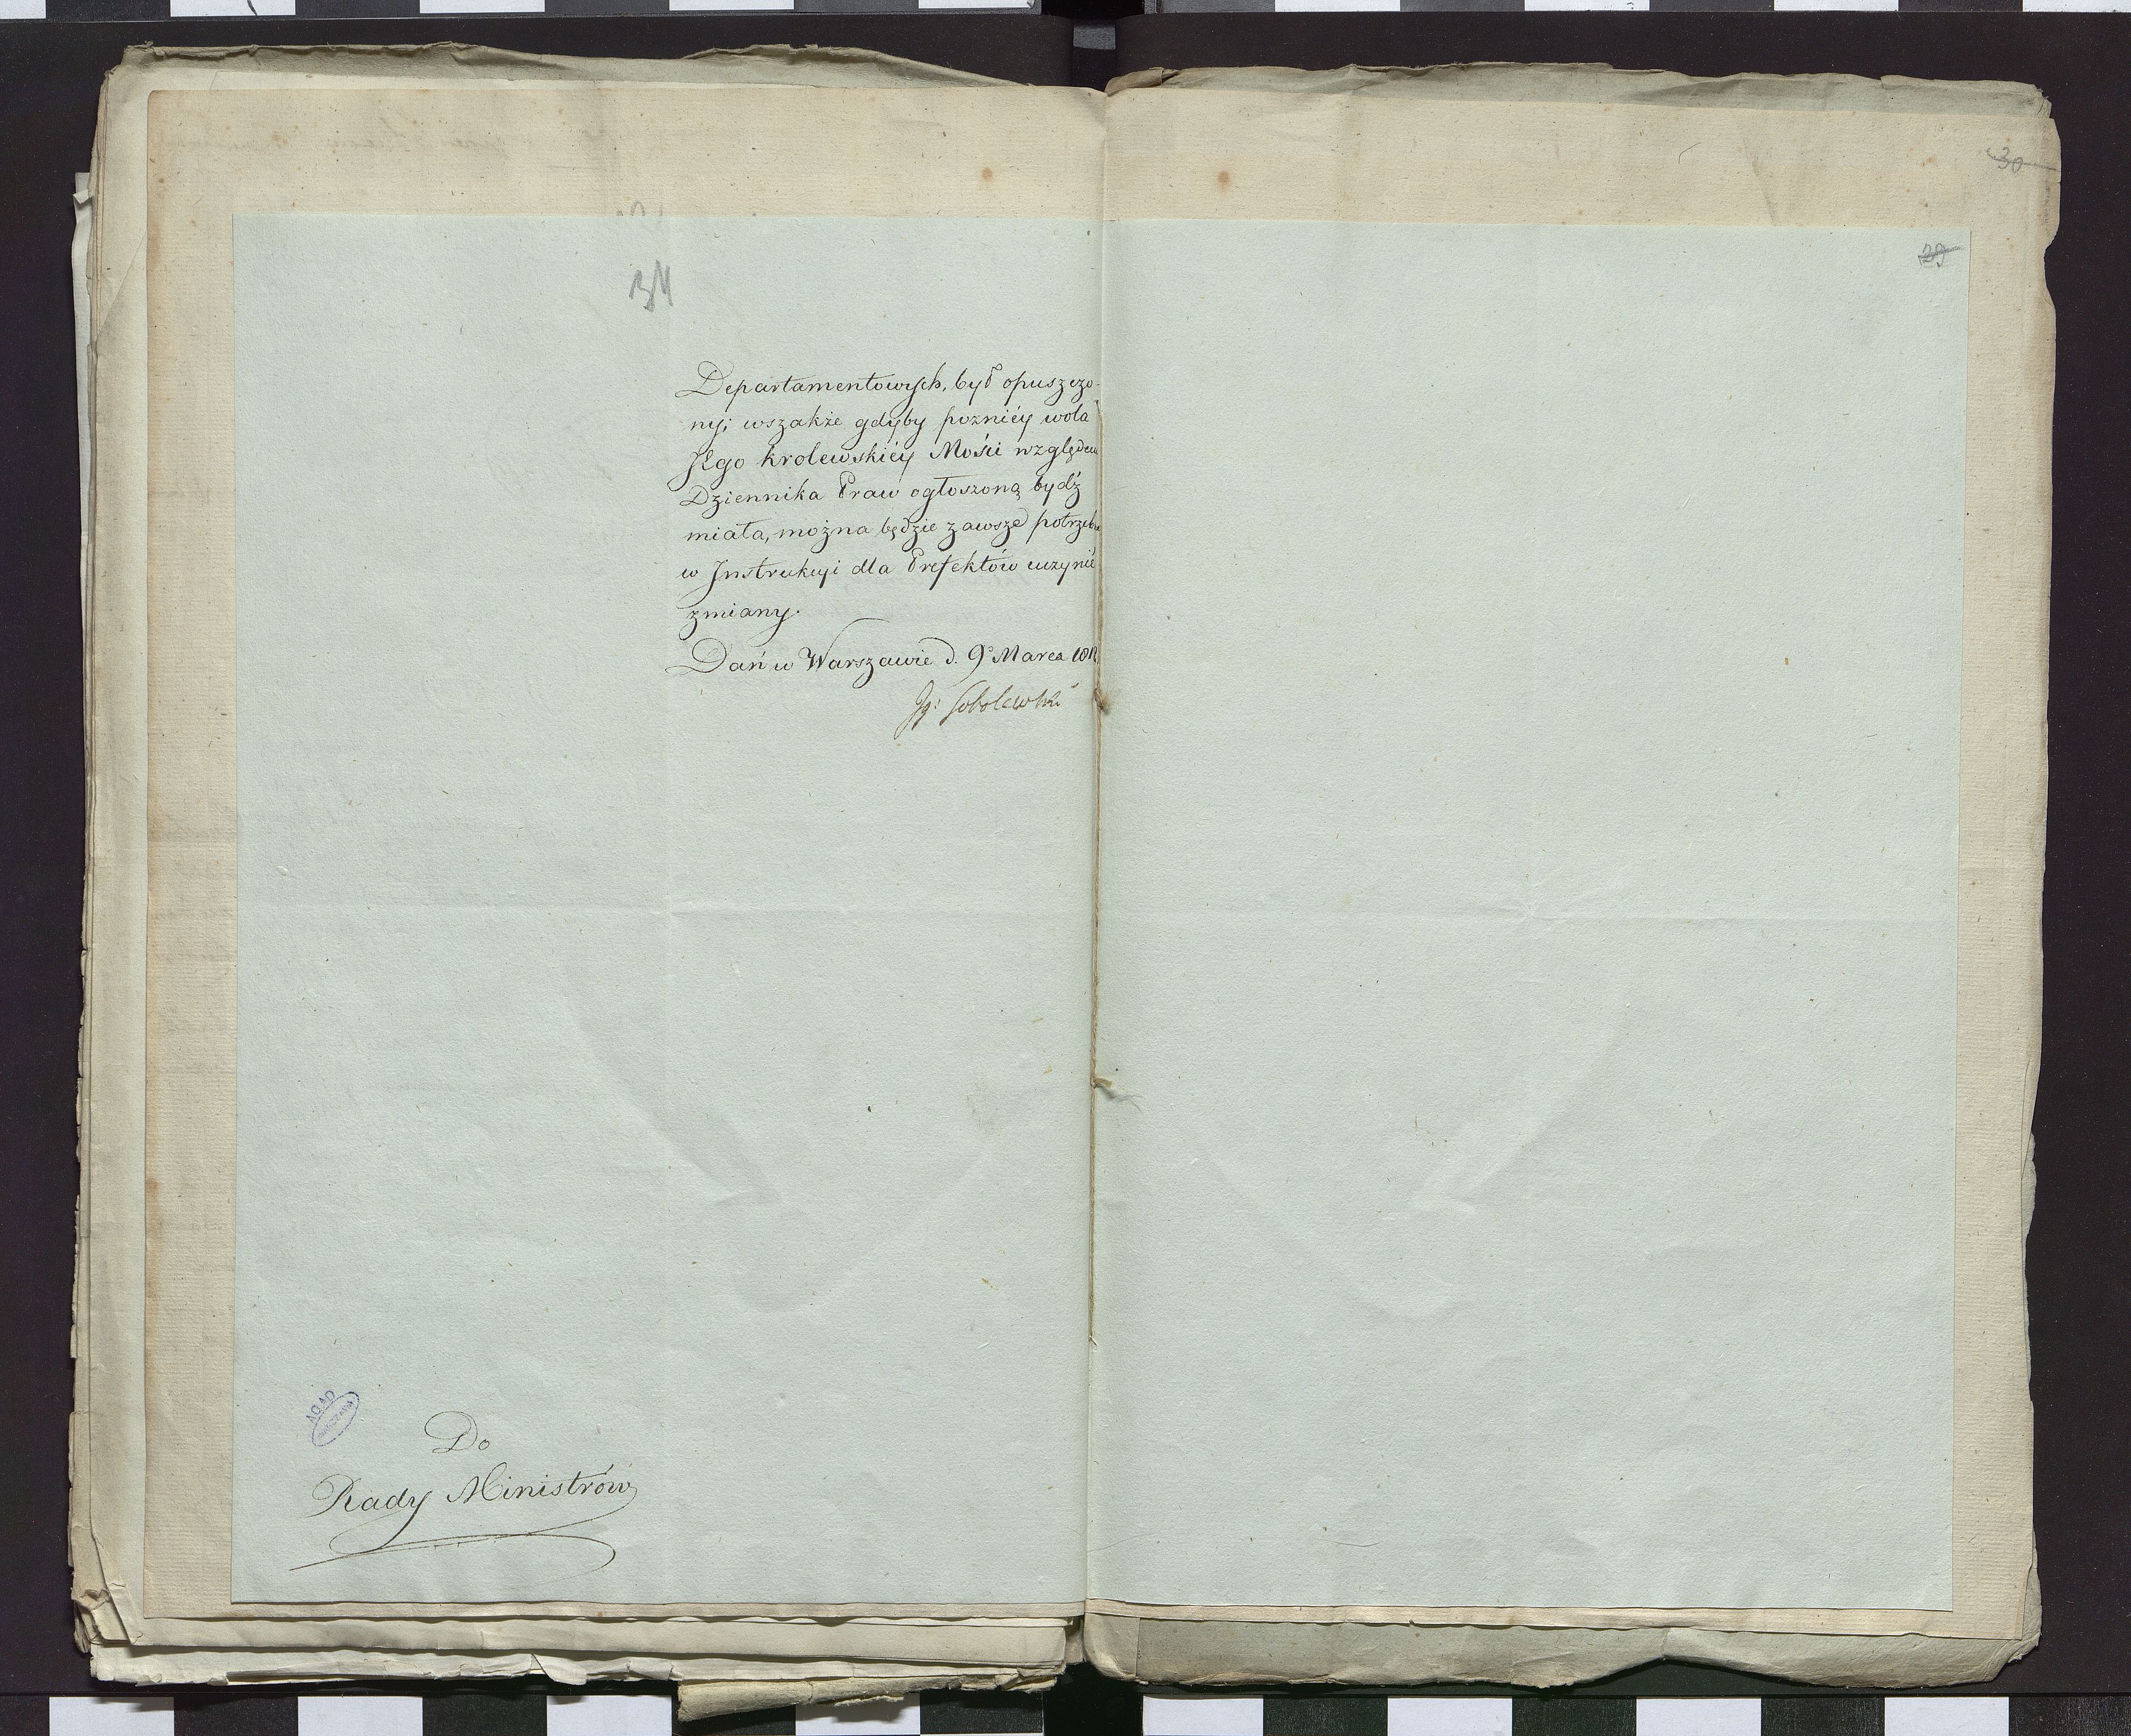 34
Departamentowych, był opuszczo-
ny; wszakże gdyby pozniéy wola
JEgo Krolewskiéy Mości względem
Dziennika Praw ogłoszoną bydź
miała, można będzie zawsze potrzebne
w Instrukcyi dla Prefektów uczynić
zmiany.
Dań w Warszawie d. 9º Marca
Ig: Sobolewski
AGAD
WARSZAWA
Do
Rady Ministrów
30
29